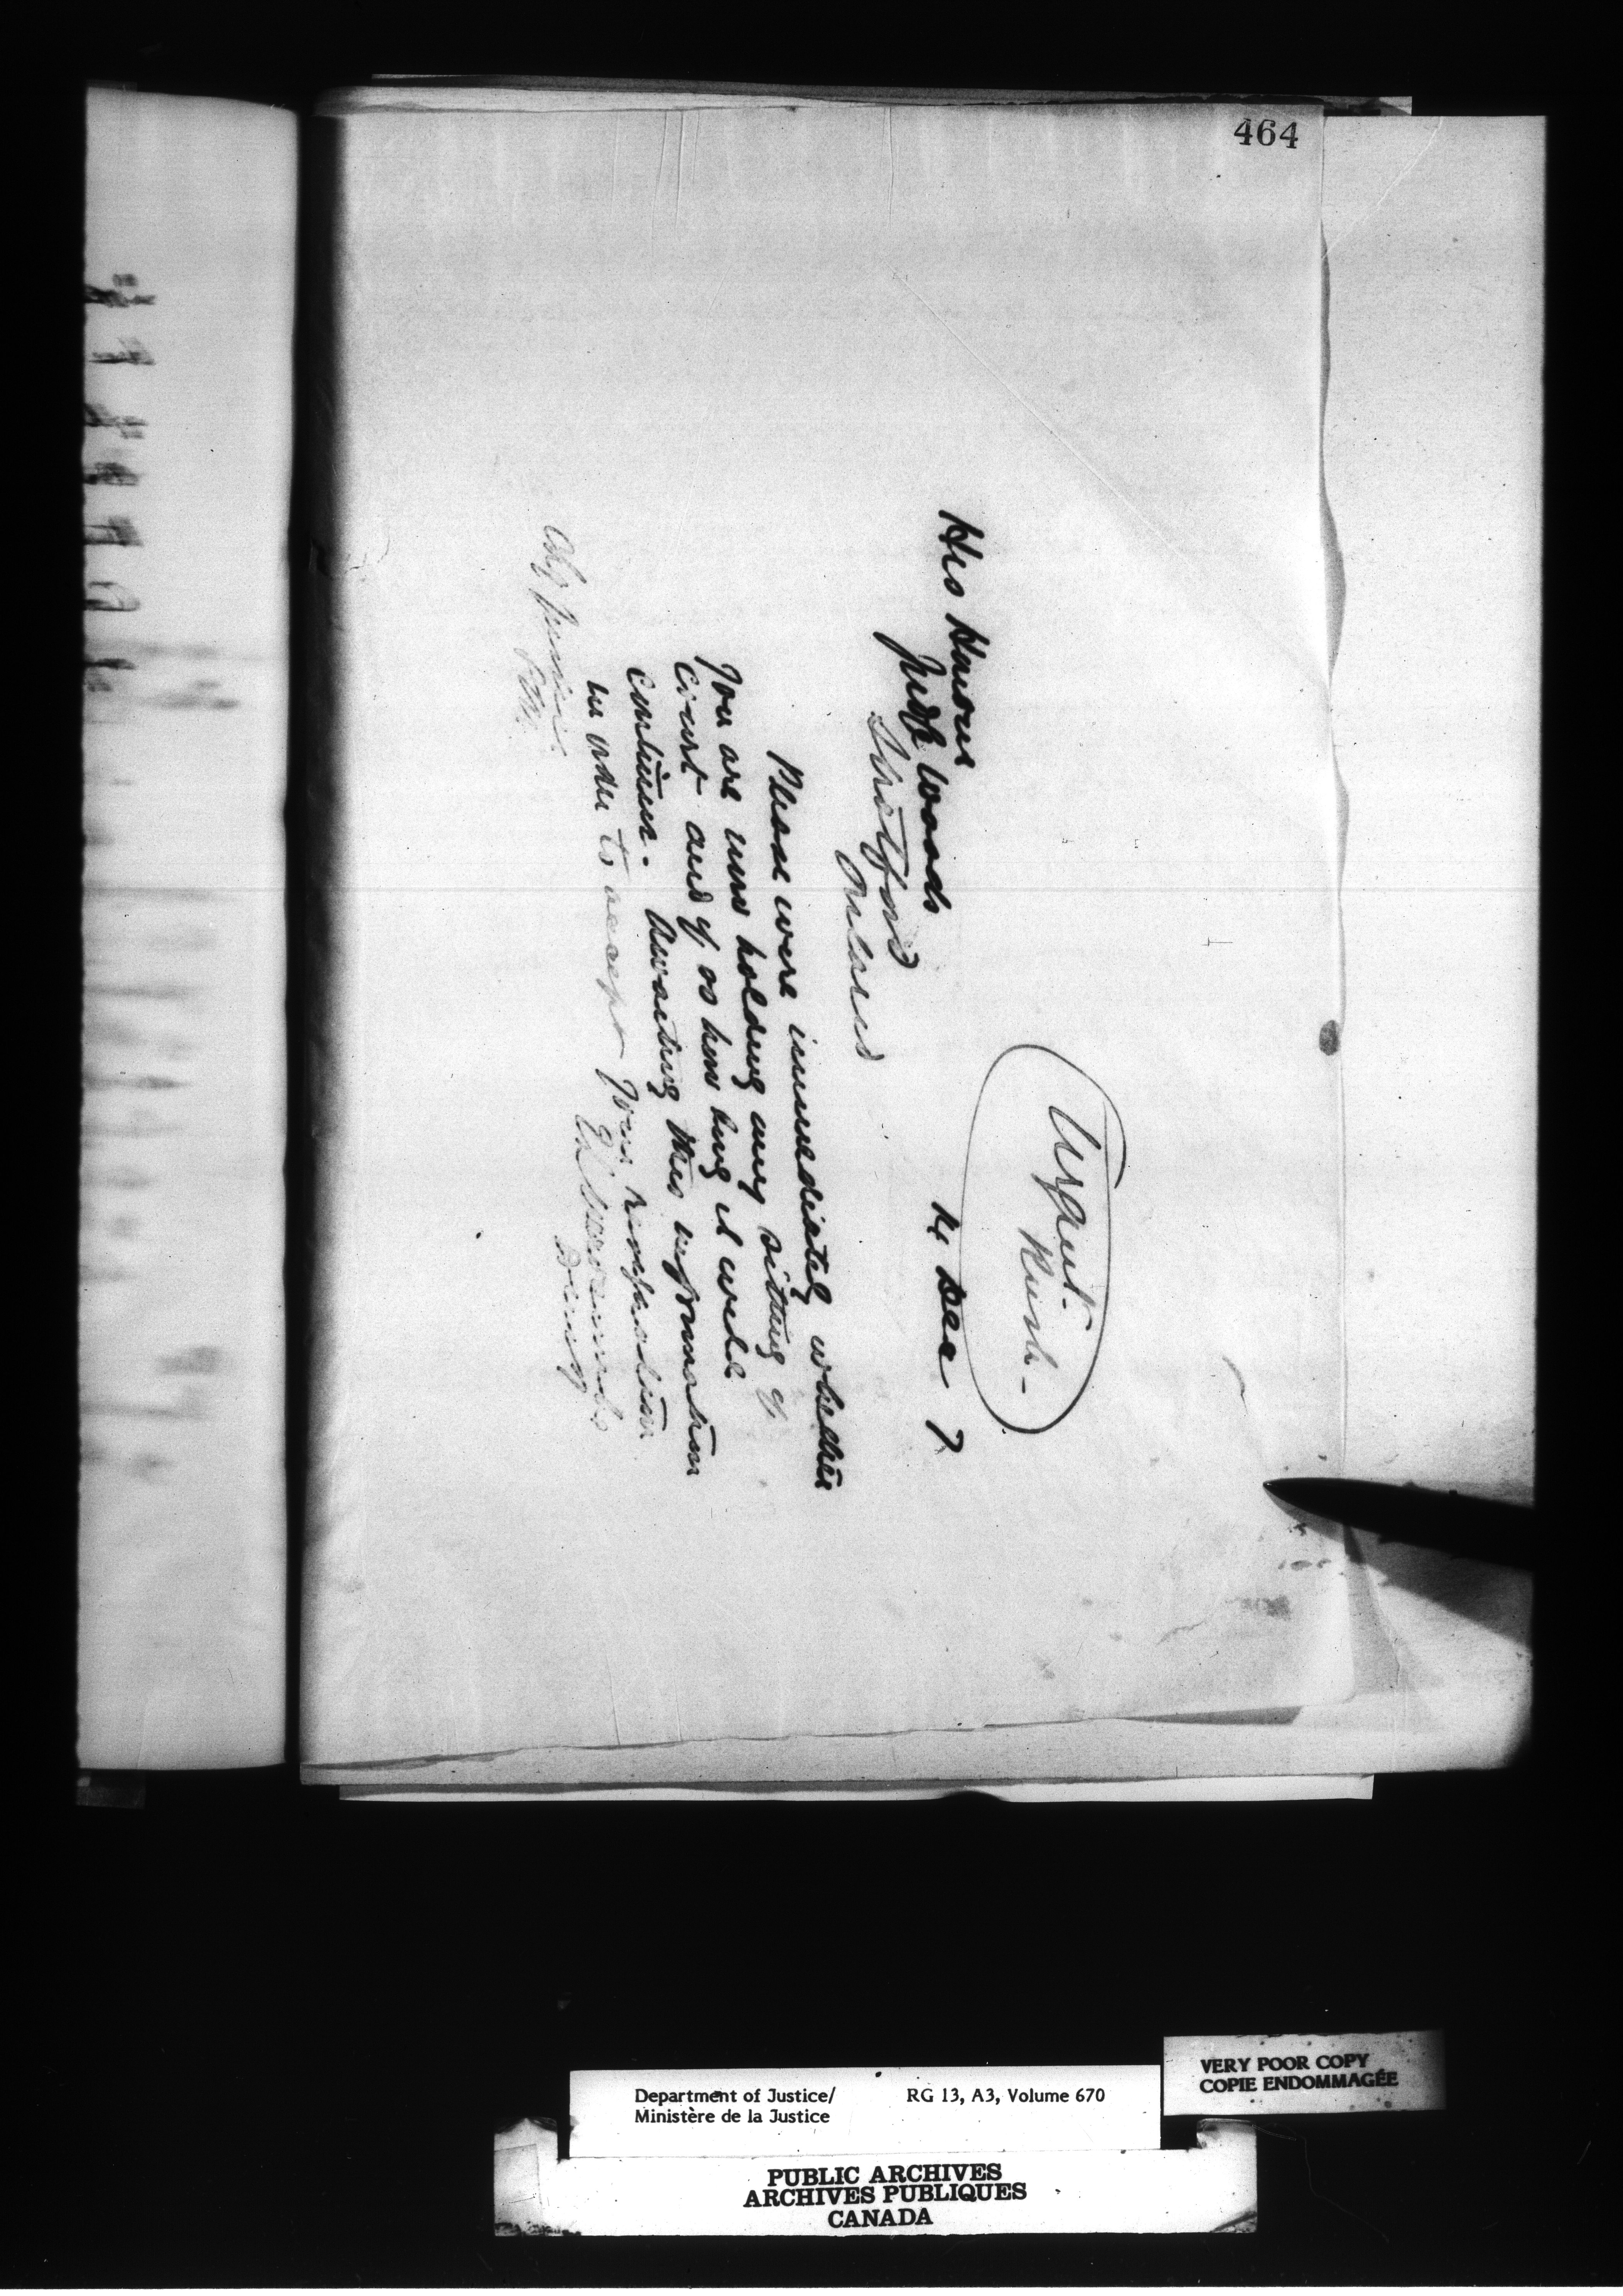 464
Urgent.
Rush -
14 Dec 7
His Honour
Judge Woods
Stratford
Ontario
Please wire immediately whether
you are now holding any sitting of
court and if so how long it will
continue. Awaiting this information
in order to accept your resignation
Dept Justice
Department of Justice/ RG 13, A3, Volume 670
Ministère de la Justice
VERY POOR COPY
COPIE ENDOMMAGÉE
PUBLIC ARCHIVES
ARCHIVES PUBLIQUES
CANADA